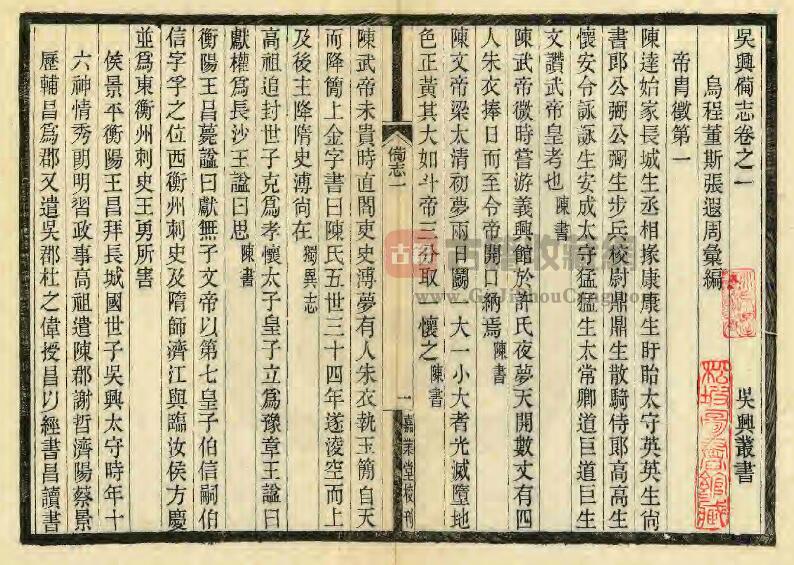 吳興備志卷之一 吳興叢書
烏程董斯張遐周彙編
帝胄徵第一
陳達始家長城生丞相掾康康生盱眙太守英英生尙
書郎公弼公弼生步兵校尉鼎鼎生散騎侍郎高高生
懷安令詠詠生安成太守猛猛生太常卿道巨道巨生
文讚武帝皇考也 陳書
陳武帝微時嘗游義興館於許氏夜夢天開數丈有四
人朱衣捧日而至令帝開口納焉 陳書
陳文帝梁太清初夢兩日鬭 大一小大者光滅墮地
色正黃其大如斗帝三分取 懷之 陳書
備志一
一 嘉業堂校刊
陳武帝未貴時直閤吏史溥夢有人朱衣執玉簡自天
而降簡上金字書曰陳氏五世三十四年遂淩空而上
及後主降隋史溥尙在 獨異志
高祖追封世子克爲孝懷太子皇子立爲豫章王諡曰
獻權爲長沙王諡曰思 陳書
衡陽王昌薨諡曰獻無子文帝以第七皇子伯信嗣伯
信字孚之位西衡州刺史及隋師濟江與臨汝侯方慶
並爲東衡州刺史王勇所害
侯景平衡陽王昌拜長城國世子吳興太守時年十
六神情秀朗明習政事高祖遣陳郡謝哲濟陽蔡景
歷輔昌爲郡又遣吳郡杜之偉授昌以經書昌讀書
古籍
古書收藏
www.GuJiShouCang.com